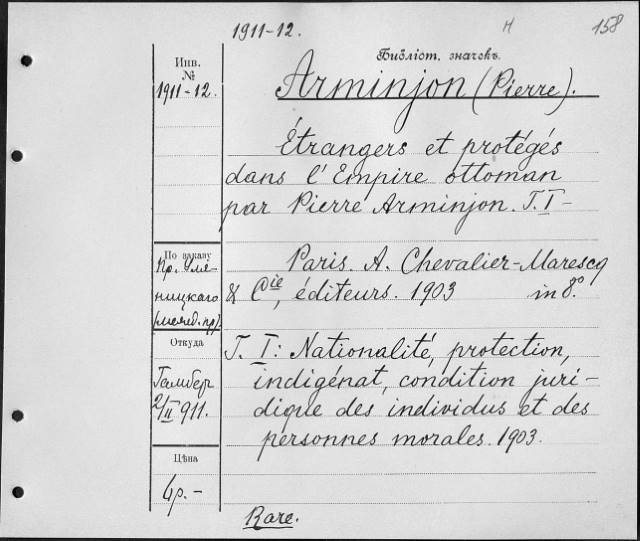 1911-12.
158
Инв.
№
1911-12.
Библіот. значекъ.
Arminjon (Pierre).
Étrangers et protégés
dans l'Empire ottoman
par Pierre Arminjon. T. I –
По заказу
Пр. Уля-
ницкаго
Paris. A. Chevalier-Marescq
& Cie, éditeurs. 1903 in 8°.
Откуда
Гамбер
2/II 911.
T. I: Nationalité, protection,
indigénat, condition juri-
dique des individus et des
personnes morales. 1903.
Цѣна
4р.-
Rare.